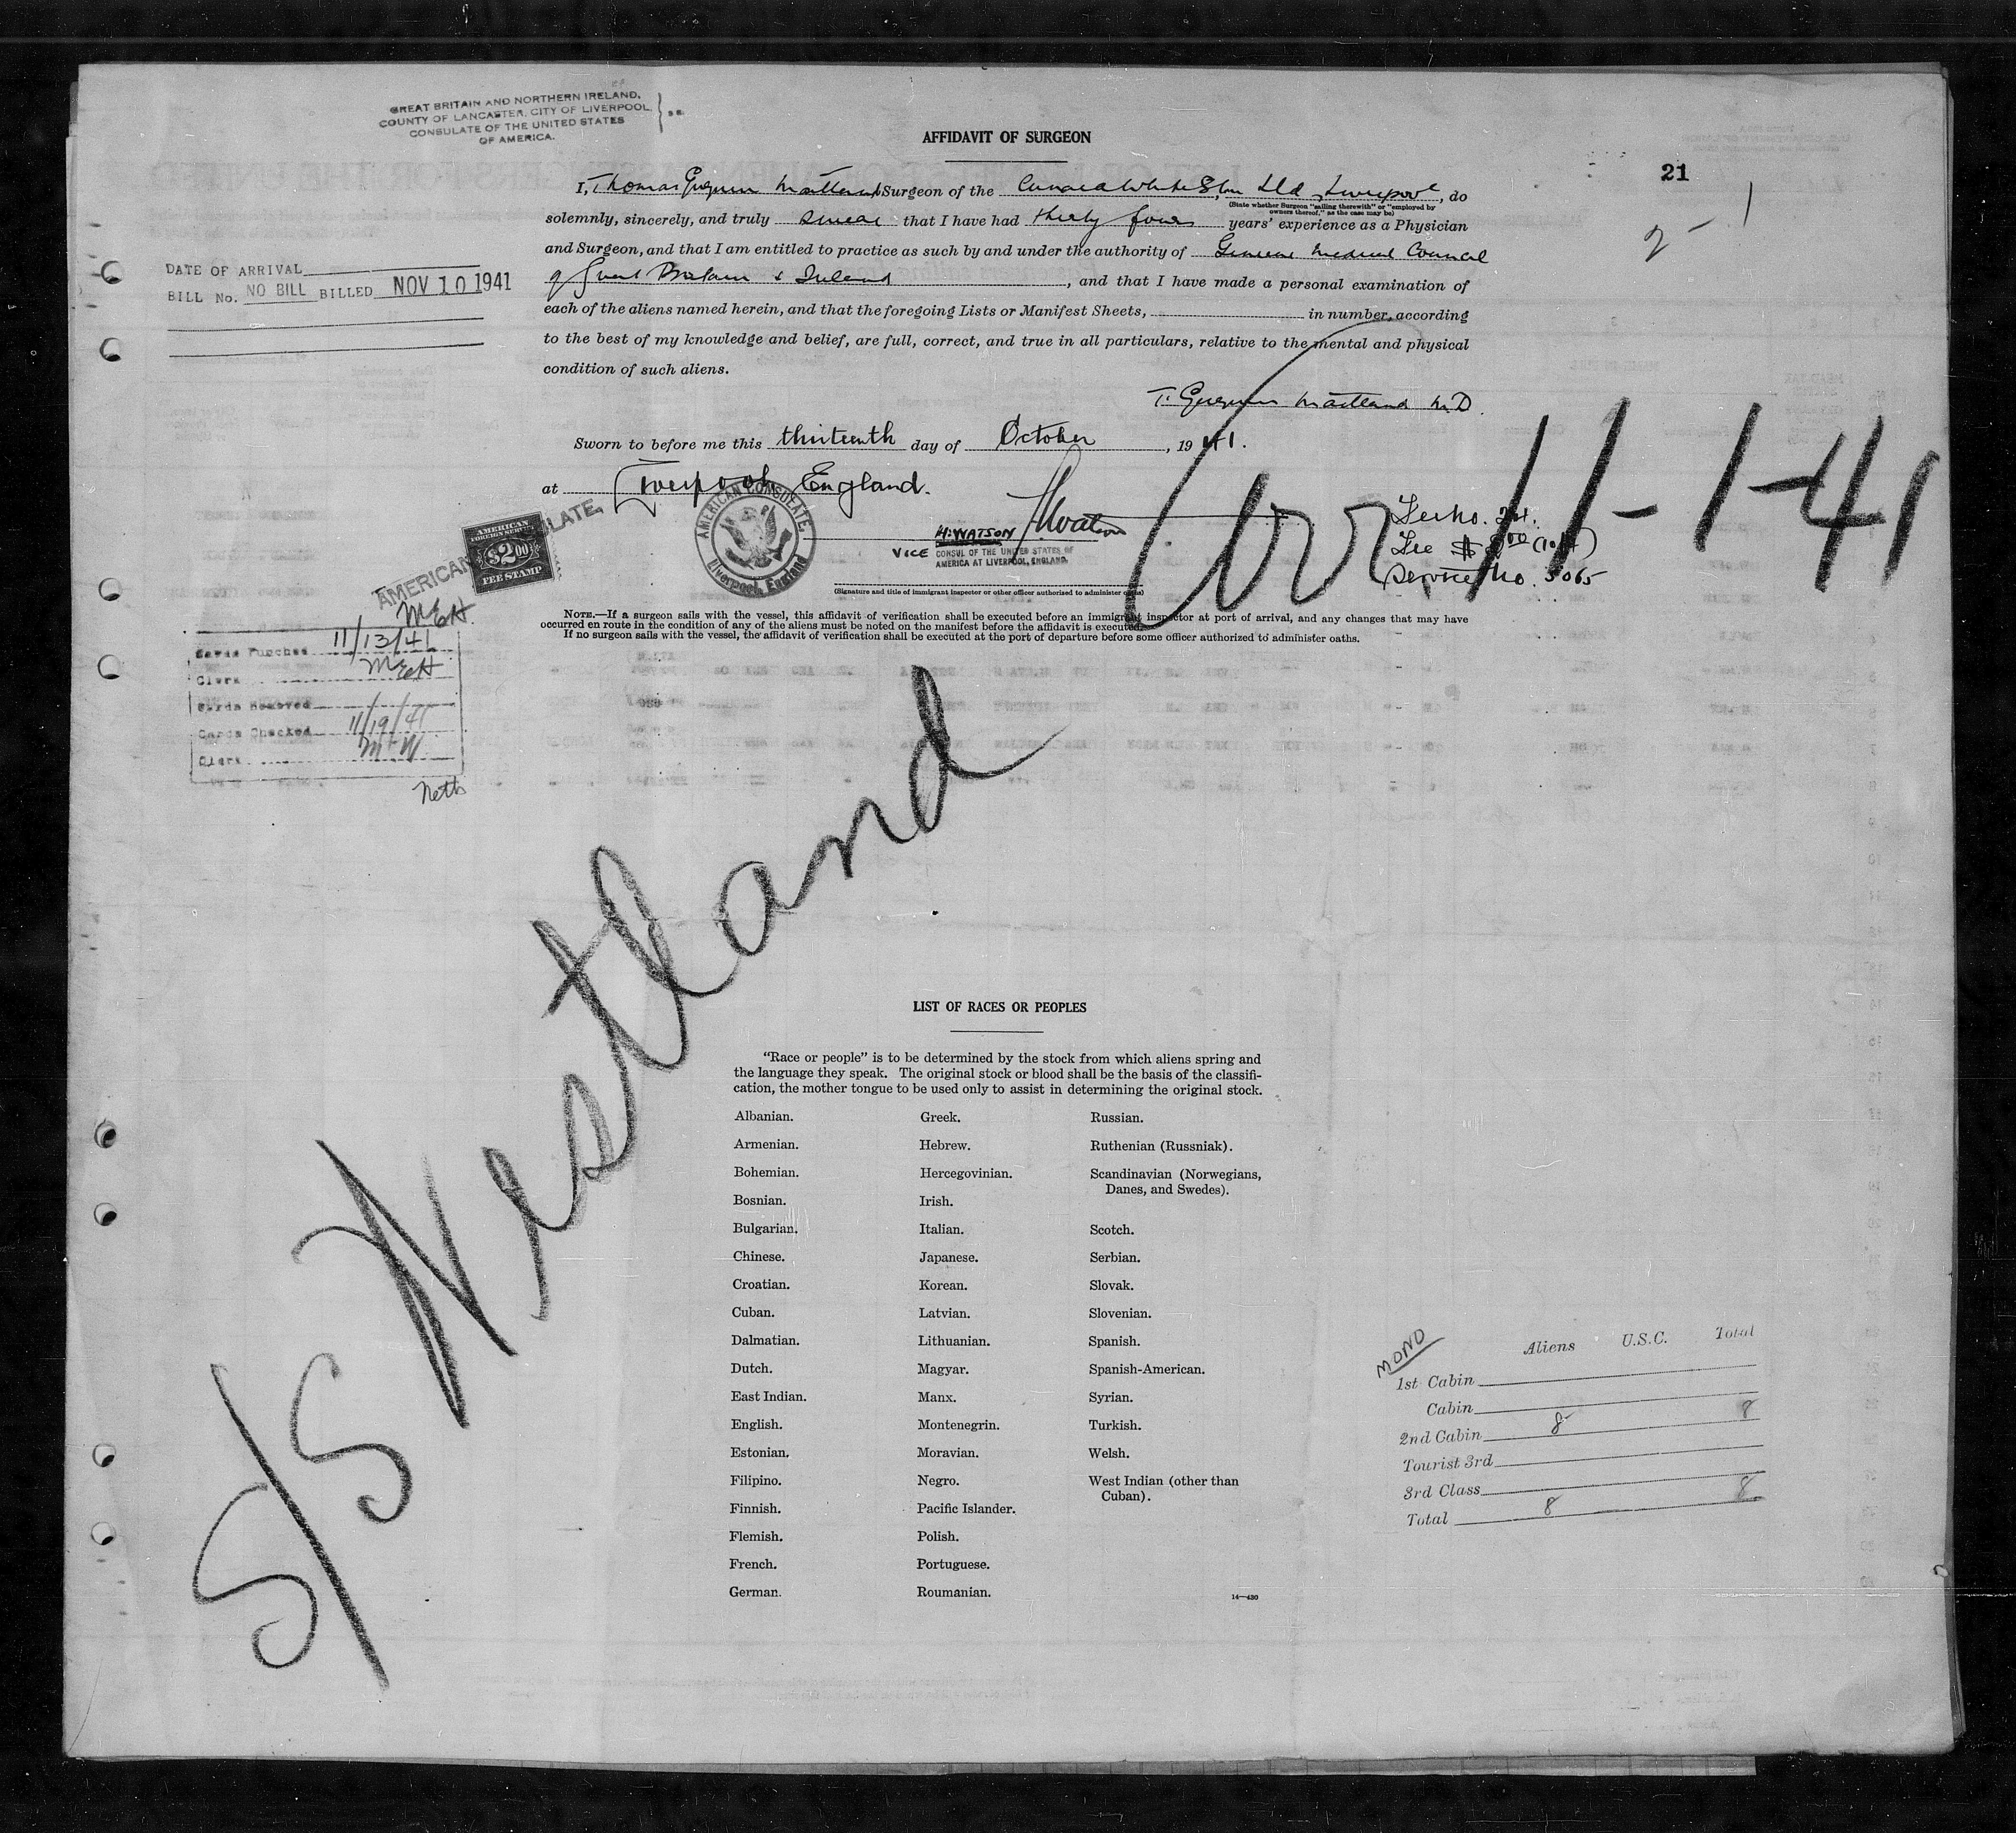 GREAT BRITAIN AND NORTHERN IRELAND,
COUNTY OF LANCASTER, CITY OF LIVERPOOL,
CONSULATE OF THE UNITED STATES
OF AMERICA.
AFFIDAVIT OF SURGEON
21
I, Thomas Maitland, Surgeon of the Cunard White Star Ltd Liverpool, do
(State whether Surgeon "sailing therewith" or "employed by owners thereof," as the case may be)
solemnly, sincerely, and truly swear that I have had thirty four years' experience as a Physician
and Surgeon, and that I am entitled to practice as such by and under the authority of General Medical Council
of Great Britain & Ireland, and that I have made a personal examination of
each of the aliens named herein, and that the foregoing Lists or Manifest Sheets, in number, according
to the best of my knowledge and belief, are full, correct, and true in all particulars, relative to the mental and physical
condition of such aliens.
DATE OF ARRIVAL
BILL No. NO BILL BILLED NOV 10 1941
T. Maitland M.D.
Sworn to before me this thirteenth day of October, 1941.
at Liverpool, England.
11-1-41
AMERICAN CONSULATE.
AMERICAN FOREIGN SERVICE
$2.00
FEE STAMP
AMERICAN CONSULATE,
Liverpool, England
H. WATSON
VICE CONSUL OF THE UNITED STATES OF
AMERICA AT LIVERPOOL, ENGLAND.
Service No. 3065
(Signature and title of immigrant inspector or other officer authorized to administer oaths)
NOTE.—If a surgeon sails with the vessel, this affidavit of verification shall be executed before an immigrant inspector at port of arrival, and any changes that may have
occurred en route in the condition of any of the aliens must be noted on the manifest before the affidavit is executed.
If no surgeon sails with the vessel, the affidavit of verification shall be executed at the port of departure before some officer authorized to administer oaths.
McH
Cards Punched 11/13/41
Clerk McH
Cards Removed
Cards Checked 11/19/41
Clerk
Neth
S/S Westland
LIST OF RACES OR PEOPLES
"Race or people" is to be determined by the stock from which aliens spring and
the language they speak. The original stock or blood shall be the basis of the classifi-
cation, the mother tongue to be used only to assist in determining the original stock.
Albanian.
Armenian.
Bohemian.
Bosnian.
Bulgarian.
Chinese.
Croatian.
Cuban.
Dalmatian.
Dutch.
East Indian.
English.
Estonian.
Filipino.
Finnish.
Flemish.
French.
German.
Greek.
Hebrew.
Hercegovinian.
Irish.
Italian.
Japanese.
Korean.
Latvian.
Lithuanian.
Magyar.
Manx.
Montenegrin.
Moravian.
Negro.
Pacific Islander.
Polish.
Portuguese.
Roumanian.
Russian.
Ruthenian (Russniak).
Scandinavian (Norwegians,
Danes, and Swedes).
Scotch.
Serbian.
Slovak.
Slovenian.
Spanish.
Spanish-American.
Syrian.
Turkish.
Welsh.
West Indian (other than
Cuban).
14—430
MONO
Aliens U.S.C. Total
1st Cabin
Cabin
2nd Cabin 8 8
Tourist 3rd
3rd Class
Total 8 8